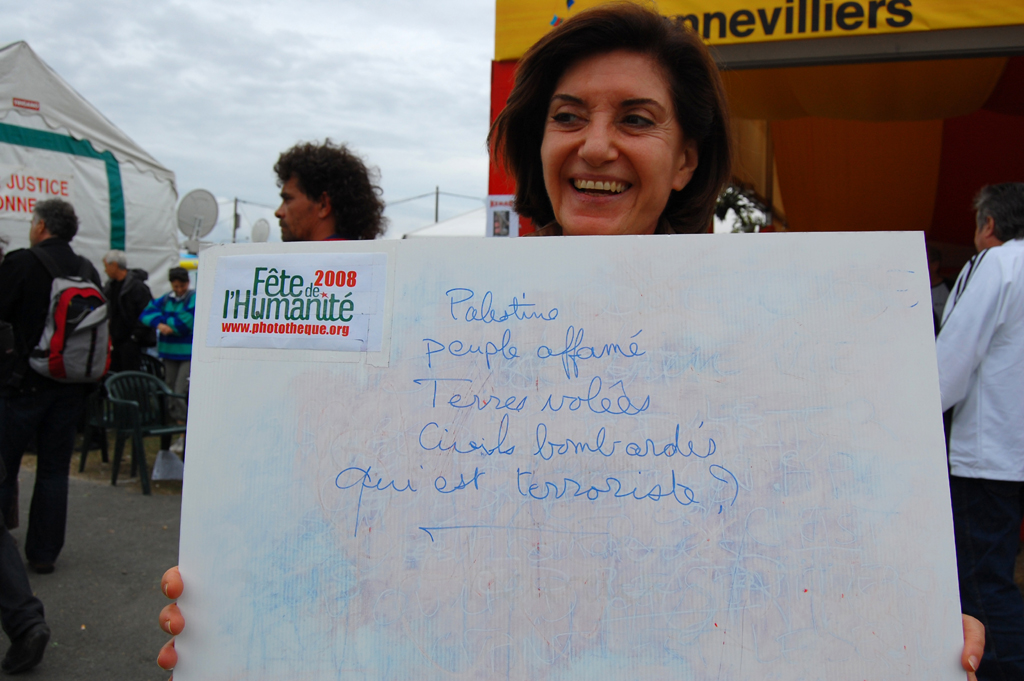 nnevilliers
JUSTICE
ONNE
Fête de 2008
l'Humanité
www.phototheque.org
Palestine
peuple affamé
Terres volées
Civils bombardés
Qui est terroriste ?